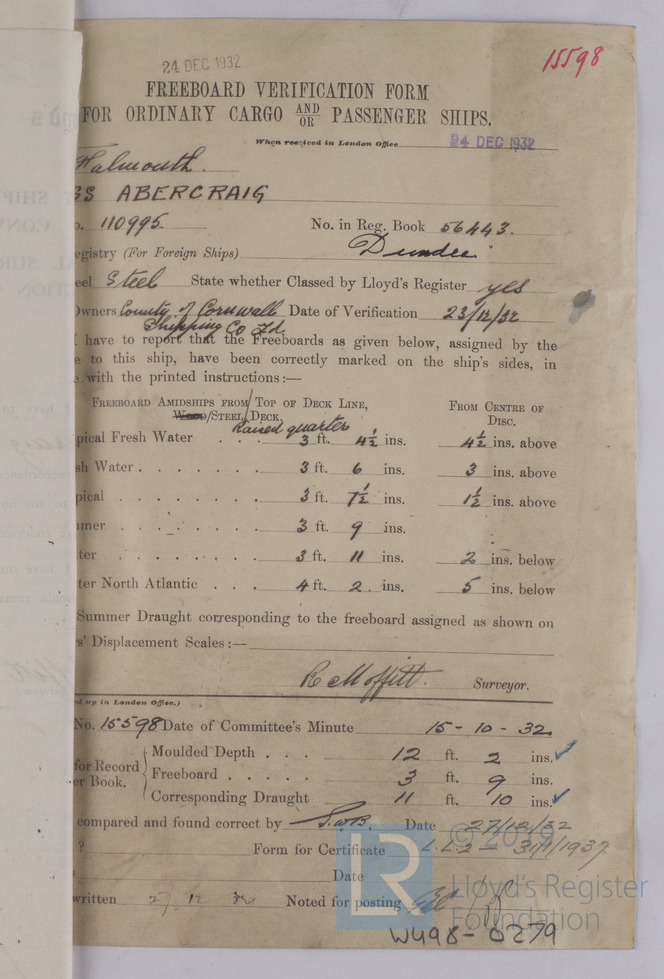 24 DEC 1932
15598
FREEBOARD VERIFICATION FORM
FOR ORDINARY CARGO AND/OR PASSENGER SHIPS.
When received in London Office 24 DEC 1932
Falmouth.
SS ABERCRAIG
o. 110995. No. in Reg. Book 56443.
egistry (For Foreign Ships) Dundee
eel Steel State whether Classed by Lloyd's Register yes
Owners County of Cornwall Date of Verification 23/12/32
Shipping Co Ld.
I have to report that the Freeboards as given below, assigned by the
e to this ship, have been correctly marked on the ship's sides, in
e with the printed instructions:—
FREEBOARD AMIDSHIPS FROM TOP OF DECK LINE, FROM CENTRE OF
WOOD/STEEL DECK. DISC.
Raised quarter
pical Fresh Water . . . 3 ft. 4½ ins. 4½ ins. above
sh Water . . . . . . . 3 ft. 6 ins. 3 ins. above
pical . . . . . . . . 3 ft. 7½ ins. 1½ ins. above
mer . . . . . . . 3 ft. 9 ins.
ter . . . . . . . 3 ft. 11 ins. 2 ins. below
ter North Atlantic . . . 4 ft. 2. ins. 5 ins. below
Summer Draught corresponding to the freeboard assigned as shown on
s' Displacement Scales:—
R Moffitt. Surveyor.
d up in London Office.)
No. 15598 Date of Committee's Minute 15-10-32.
Moulded Depth . . . 12 ft. 2 ins.
for Record
Freeboard . . . . . 3 ft. 9 ins.
er Book.
Corresponding Draught 11 ft. 10 ins.
compared and found correct by S.W.B. Date 27/12/32
? Form for Certificate L.L.2 — 31/1/1937
s Date
written 27.12.32 Noted for posting
© 2019
LR
Lloyd's Register
Foundation
W498-0279